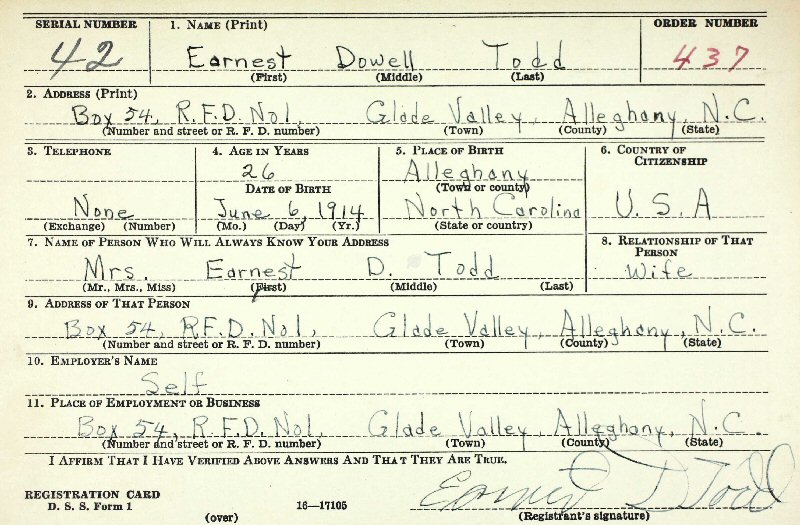 SERIAL NUMBER 1. NAME (Print) ORDER NUMBER
42 Earnest Dowell Todd 437
(First) (Middle) (Last)
2. ADDRESS (Print)
Box 54, R.F.D. No 1, Glade Valley, Alleghany, N.C.
(Number and street or R. F. D. number) (Town) (County) (State)
3. TELEPHONE 4. AGE IN YEARS 5. PLACE OF BIRTH 6. COUNTRY OF CITIZENSHIP
26 Alleghany
DATE OF BIRTH (Town or county)
None June 6, 1914 North Carolina U.S.A
(Exchange) (Number) (Mo.) (Day) (Yr.) (State or country)
7. NAME OF PERSON WHO WILL ALWAYS KNOW YOUR ADDRESS 8. RELATIONSHIP OF THAT PERSON
Mrs. Earnest D. Todd Wife
(Mr., Mrs., Miss) (First) (Middle) (Last)
9. ADDRESS OF THAT PERSON
Box 54, R.F.D. No 1, Glade Valley, Alleghany, N.C.
(Number and street or R. F. D. number) (Town) (County) (State)
10. EMPLOYER'S NAME
Self
11. PLACE OF EMPLOYMENT OR BUSINESS
Box 54, R.F.D. No 1, Glade Valley, Alleghany, N.C.
(Number and street or R. F. D. number) (Town) (County) (State)
I AFFIRM THAT I HAVE VERIFIED ABOVE ANSWERS AND THAT THEY ARE TRUE.
REGISTRATION CARD
D. S. S. Form 1 16—17105 Earnest D Todd
(over) (Registrant's signature)